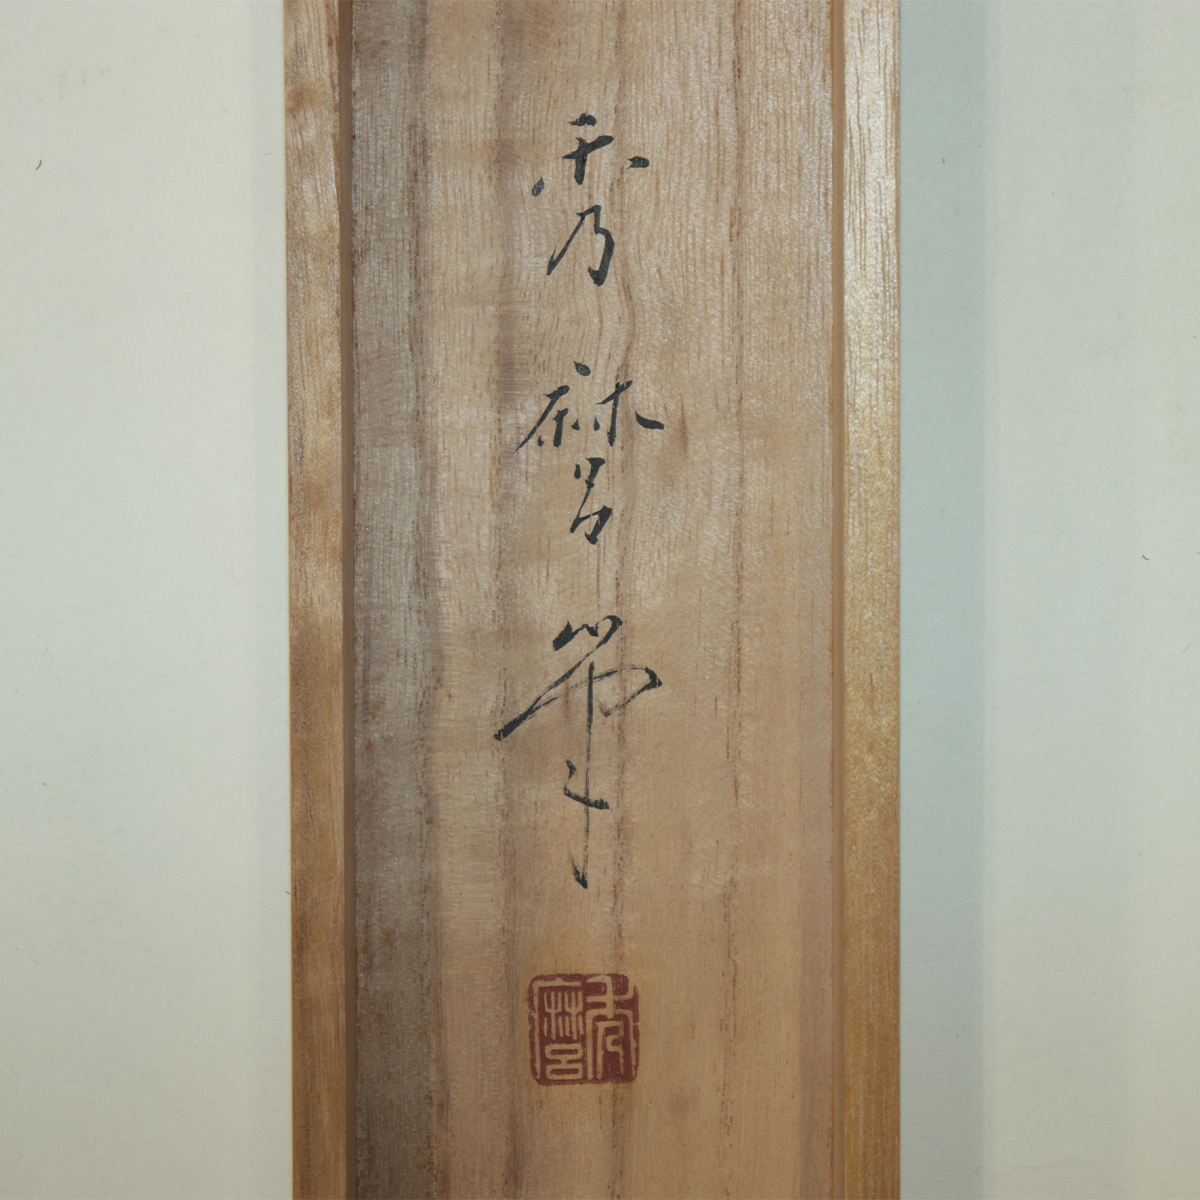 秀麿筆
秀麿